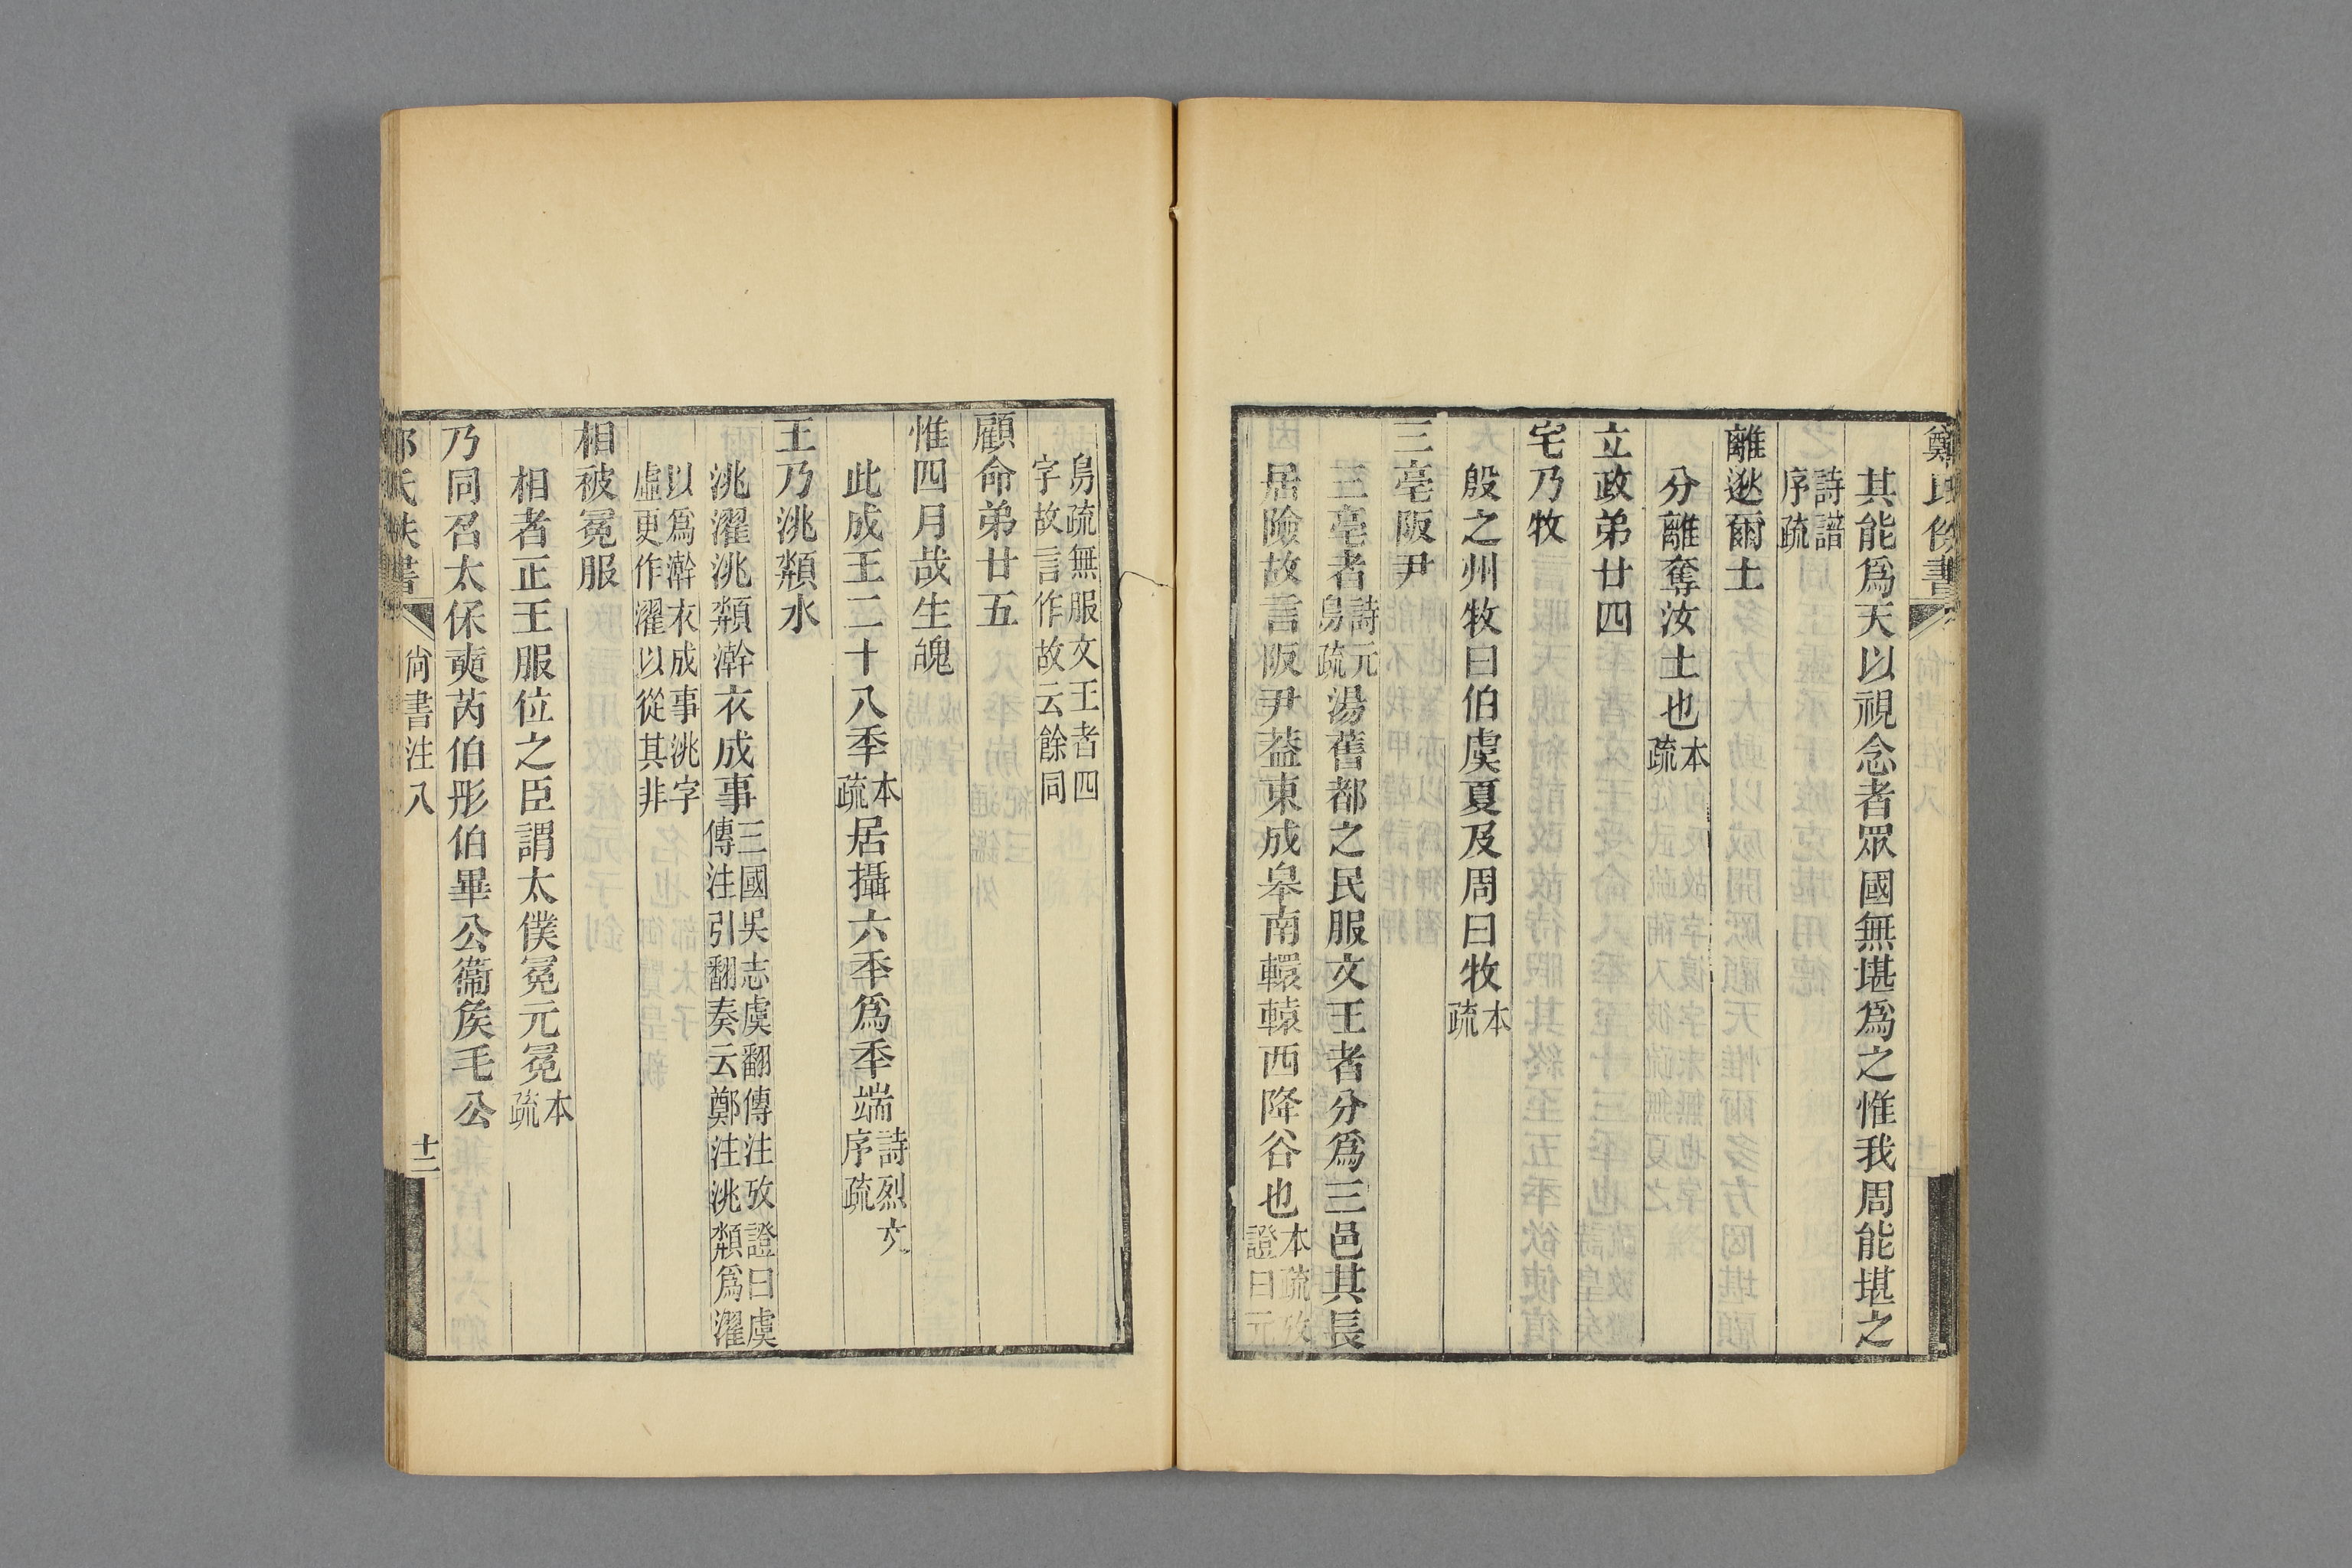 鄭氏佚書
其能爲天以視念者眾國無堪爲之惟我周能堪之
詩譜
序疏
離逖爾土
分離奪汝土也本疏
立政弟廿四
宅乃牧
殷之州牧曰伯虞夏及周曰牧本疏
三亳阪尹
三亳者詩元鳥疏湯舊都之民服文王者分爲三邑其長
居險故言阪尹葢東成皋南轘轅西降谷也本疏攷證曰元
鳥疏無服文王者四
字故言作故云餘同
顧命弟廿五
惟四月哉生魄
此成王二十八秊本疏居攝六秊爲秊端詩烈文序疏
王乃洮頮水
洮濯洮頮澣衣成事三國吳志虞翻傳注攷證曰虞
傳注引翻奏云鄭注洮頮爲濯
以爲澣衣成事洮字
虛更作濯以從其非
相被冕服
相者正王服位之臣謂太僕冕元冕本疏
乃同召太保奭芮伯彤伯畢公衞矦毛公
鄭氏佚書 尙書注八 十二